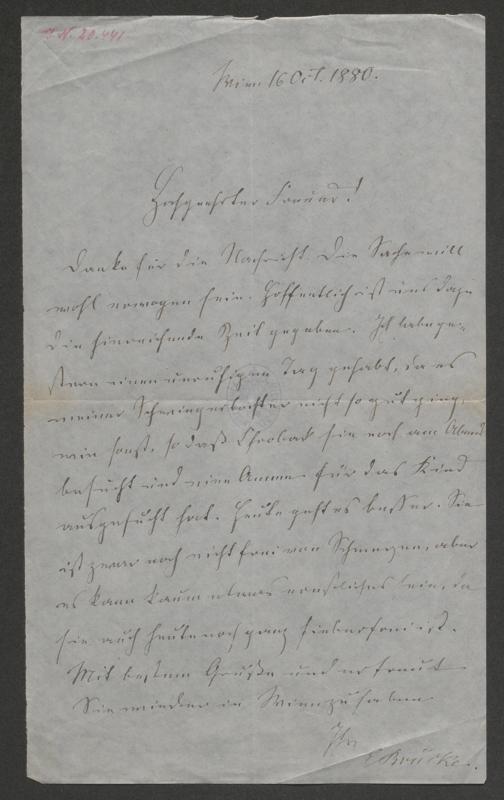 I. N. 20.441
Wien 16 Oct. 1880.
Hochgeehrter Freund!
Danke für die Nachricht. Die Sache will
wohl erwogen sein. Hoffentlich ist uns dazu
die hinreichende Zeit gegeben. Ich habe ge-
stern einen unruhigen Tag gehabt, da es
meiner Schwiegertochter nicht so gut ging,
wie sonst, so daß Chrobak sie noch am Abend
besucht und eine Amme für das Kind
ausgesucht hat. Heute geht es besser. Sie
ist zwar noch nicht frei von Schmerzen, aber
es kann kaum etwas ernstliches sein, da
sie auch heute noch ganz fieberfrei ist.
Mit bestem Gruße und erfreut
Sie wieder in Wien zu haben
Ihr
E Brücke.